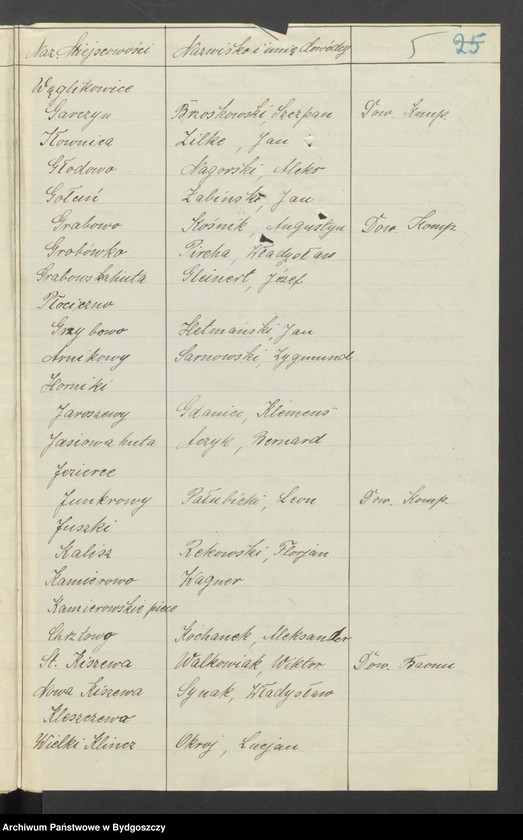 Naz. Miejscowości Nazwisko i imię dowódcy 5 25
Węglikowice
Garczyn Brzoskowski Szczpan Dow. Komp.
Kłownica Zilke, Jan
Głodowo Nagorski, Aleks
Gołuń Żabinski, Jan
Grabowo Kośnik, Augustyn Dow. Komp.
Grobówko Pircha, Władysław
Grabowska huta Gleinert, Józef
Płociczno
Grzybowo Hetmański Jan
Arnikowy Sarnowski, Zygmund
Horniki
Jaroszewy Gdaniec, Klemens
Jasiowa huta Bernard
Jezierce
Junkrowy Pałubicki, Leon Dow. Komp.
Juszki
Kalisz Rekowski, Florjan
Kamierowo Wagner
Kamierowskie piece
Kochanek, Aleksander
St. Kiszewa Walkowiak, Wiktor Dow. Baonu
Nowa Kiszewa Synak, Władysław
Kleszczewo
Wielki Klincz Okroj, Lucjan
Archiwum Państwowe w Bydgoszczy